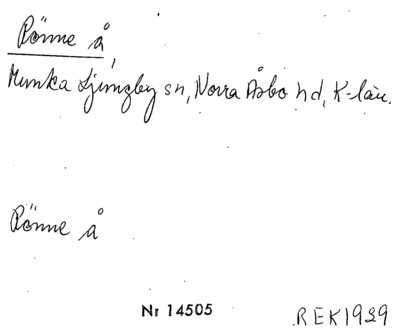 Rönne å,
Munka Ljungby sn, Norra Åsbo hd, K-län.
Rönne å
Nr 14505
REK1939